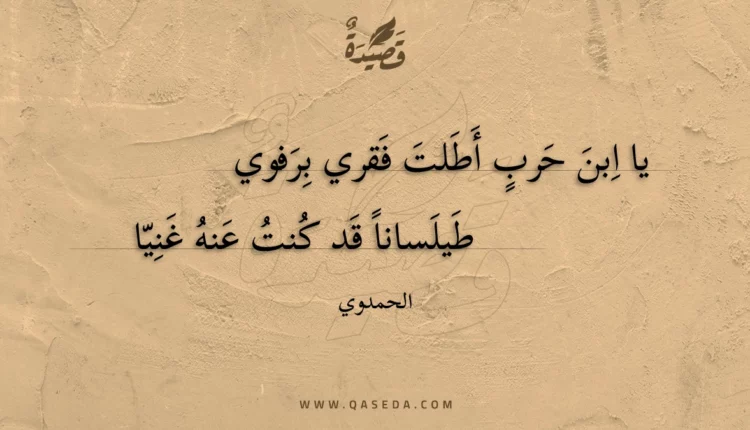 قَصِيدَةٌ
يا اِبنَ حَربٍ أَطَلتَ فَقري بِرَفوي
طَيلَساناً قَد كُنتُ عَنهُ غَنِيّا
الحمدوي
WWW.QASEDA.COM